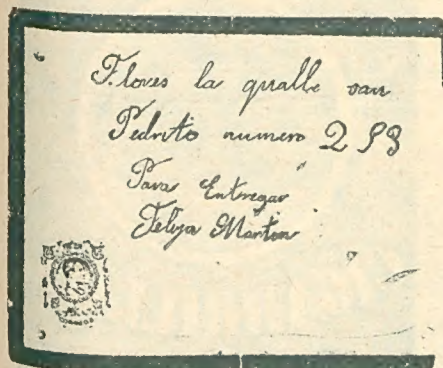 Flores la qualle san
Pedrito numero 293
Para Entregar
Felija Marton